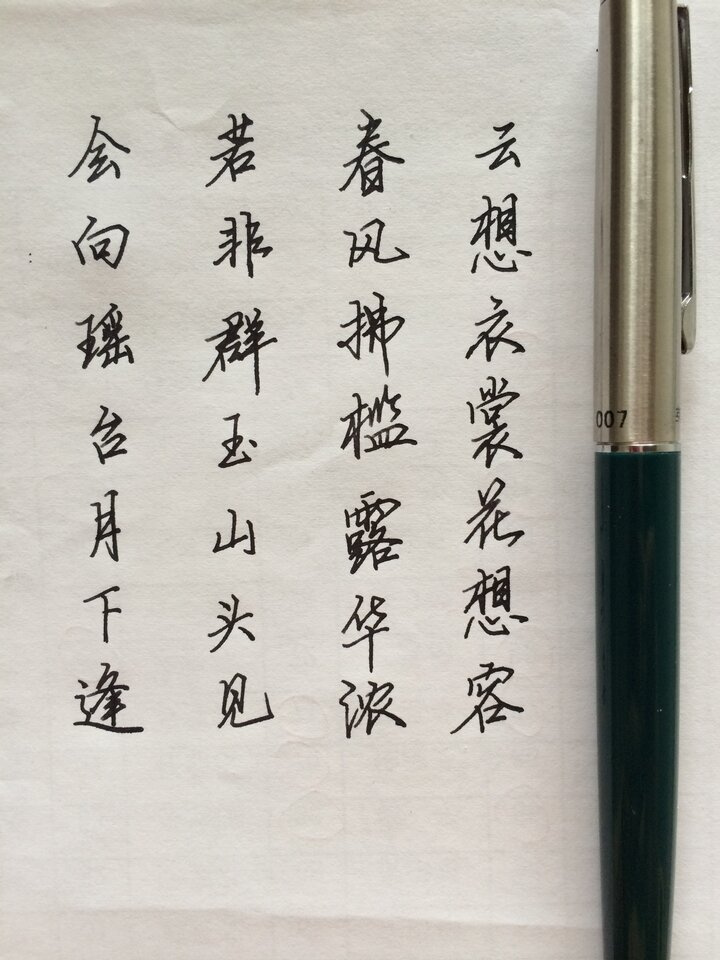 云想衣裳花想容
春风拂槛露华浓
若非群玉山头见
会向瑶台月下逢
007